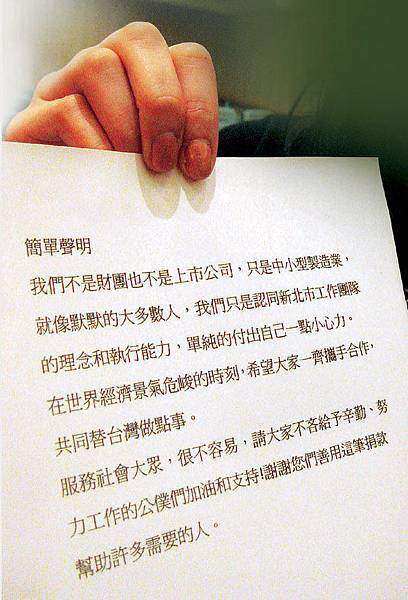 簡單聲明
我們不是財團也不是上市公司，只是中小型製造業，
就像默默的大多數人，我們只是認同新北市工作團隊
的理念和執行能力，單純的付出自己一點小心力。
在世界經濟景氣危峻的時刻，希望大家一齊攜手合作，
共同替台灣做點事。
服務社會大眾，很不容易，請大家不吝給予辛勤、努
力工作的公僕們加油和支持!謝謝您們善用這筆捐款
幫助許多需要的人。